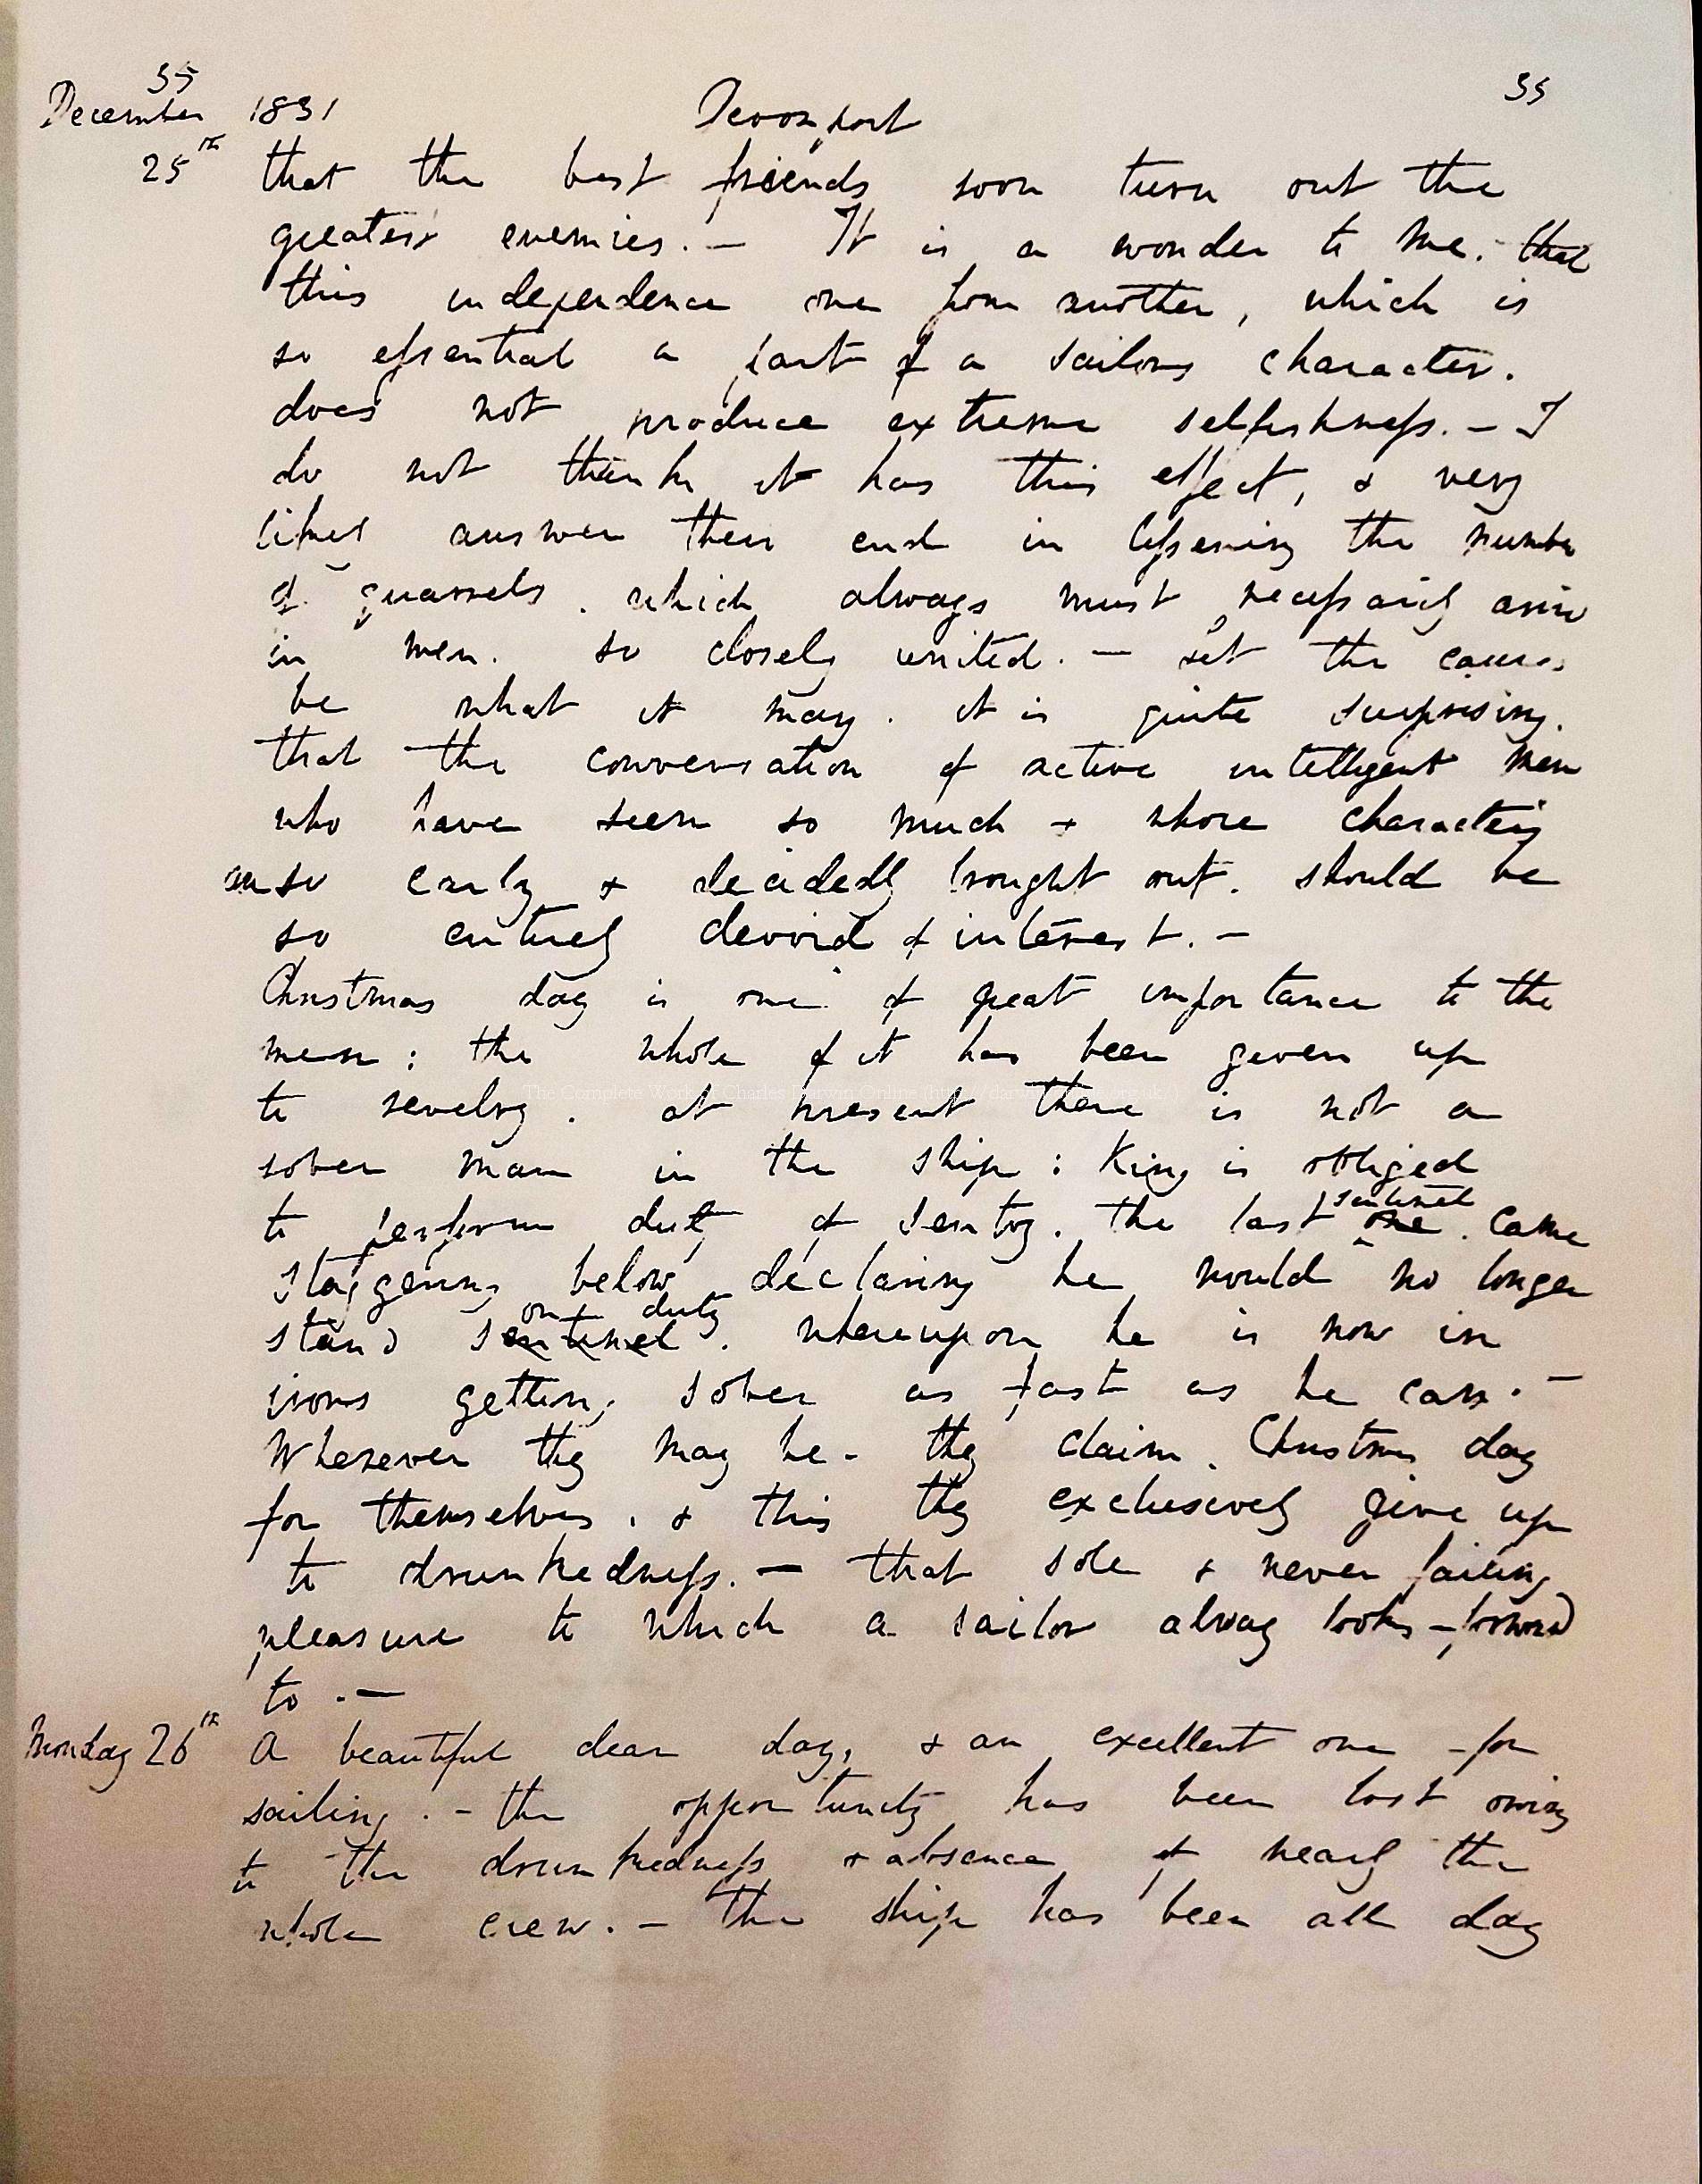 35
35
December 1831 Devonport
25th that the best friends soon turn out the
greatest enemies. — It is a wonder to me. that
this independence one from another, which is
so essential a part of a sailors character.
does not produce extreme selfishness. — I
do not think it has this effect, & very
likely answer their end in lessening the number
of quarrels. which always must necessarily arise
in men. so closely united. — Let the cause
be what it may. it is quite surprising.
that the conversation of active intelligent men
who have seen so much & whose characters
are so early & decidedly brought out. should be
so entirely devoid of interest. —
Christmas day is one of great importance to the
men: the whole of it has been given up
to revelry. at present there is not a
sober man in the ship: King is obliged
to perform duty of sentry. the last sentinel came
staggering below declaring he would no longer
on duty
stand sentinel. whereupon he is now in
irons getting sober as fast as he can. —
Wherever they may be. they claim. Christmas day
for themselves, & this they exclusively give up
to drunkedness. — that sole & never failing
pleasure to which a sailor always looks forward
to. —
Monday 26th A beautiful clear day, & an excellent one for
sailing. — the opportunity has been lost owing
to the drunkedness & absence of nearly the
whole crew. — The ship has been all day